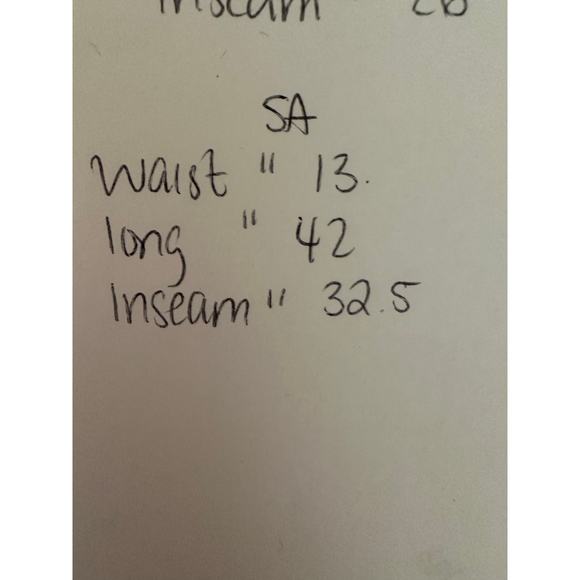 Inseam 26
SA
Waist " 13.
long " 42
Inseam " 32.5